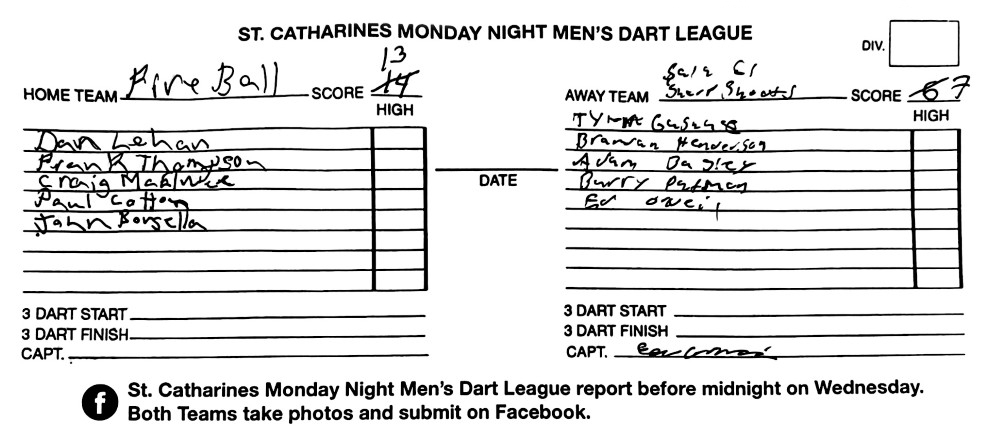 ST. CATHARINES MONDAY NIGHT MEN'S DART LEAGUE
DIV.
13
HOME TEAM Fire Ball SCORE 14
HIGH
Dan Lehan
Frank Thompson
Craig
Paul Cotton
John Borsella
3 DART START
3 DART FINISH
CAPT.
DATE
AWAY TEAM SCORE 6 7
HIGH
Henderson
Adam Dagley
Barry
Ed Oneil
3 DART START
3 DART FINISH
CAPT.
f St. Catharines Monday Night Men's Dart League report before midnight on Wednesday.
Both Teams take photos and submit on Facebook.